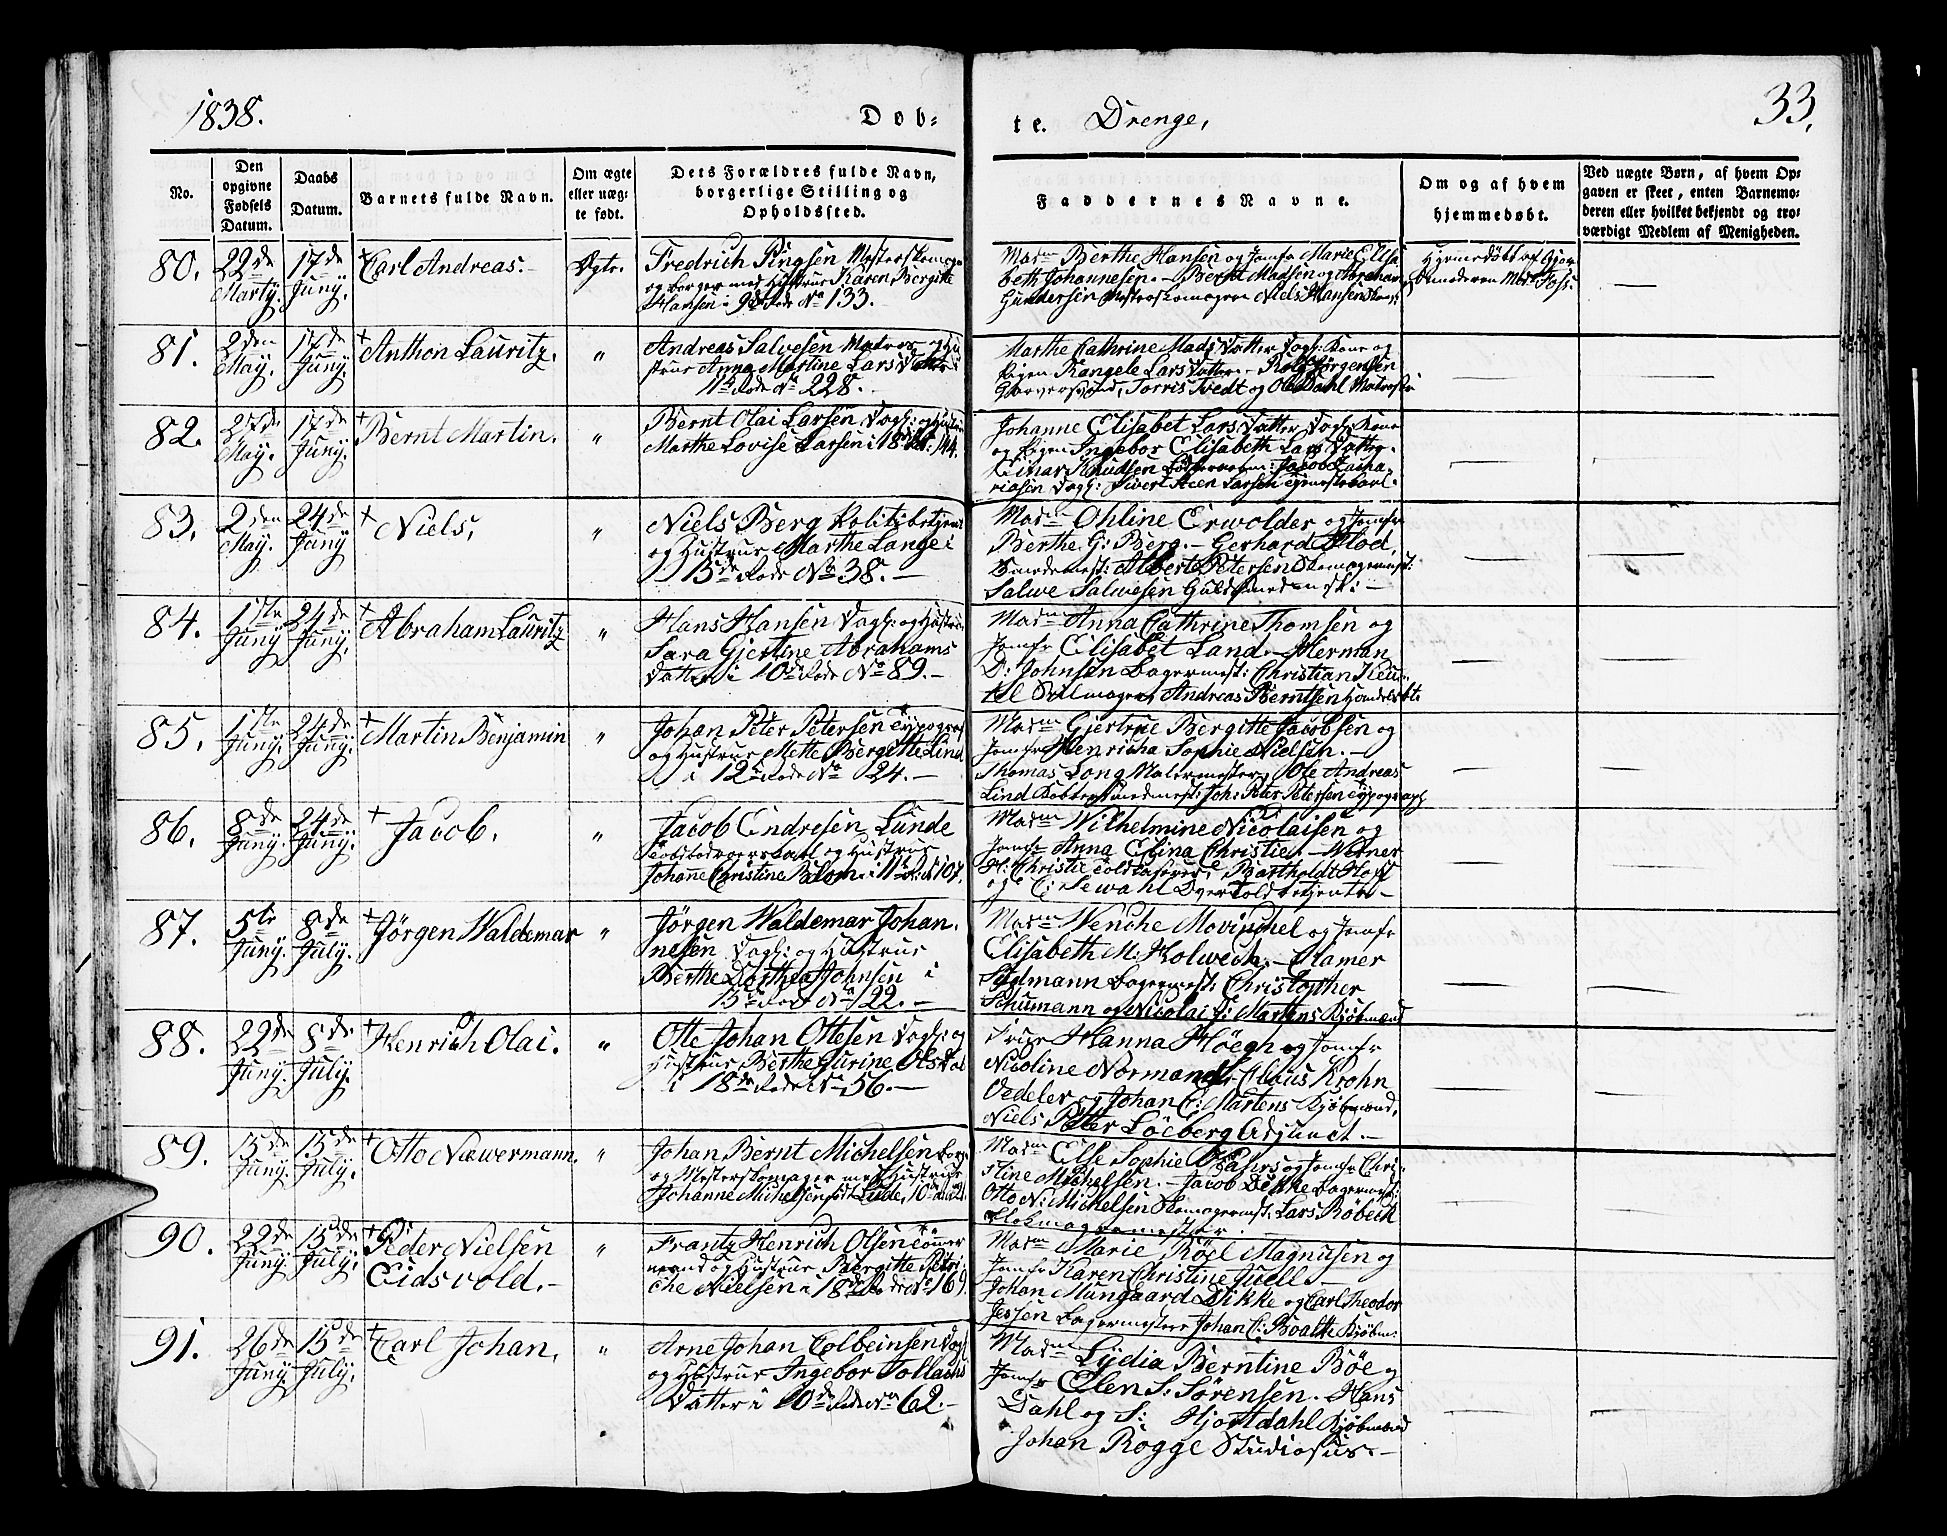 1838.
Døb-
te. Drenge,
33.
No.
Den opgivne Fødsels Datum.
Daabs Datum.
Barnets fulde Navn.
Om ægte eller uægte født.
Dets Forældres fulde Navn, borgerlige Stilling og Opholdssted.
Faddernes Navne.
Om og af hvem hjemmedøbt.
Ved uægte Børn, af hvem Opgaven er skeet, enten Barnemoderen eller hvilket bekjendt og troværdigt Medlem af Menigheden.
80. 22de Martÿ. 17de Junÿ. Carl Andreas.- Ægte.
Fredrich Pingsen Mesterskomag:
og borger med Hustrue Karen Bergitte
Hansen i 9de Rode No 133.-
Madm Berthe Hansen og Jomfr Marie Elisa
beth Johannesen.- Bernt Madsen og Abraham
Gundersen Mesterskomagere Niels Hansen
Hjemmedøbt af Gjor
demoderen Mad: Foss.
81. 2den May. 17de Junÿ. Anthon Lauritz. "
Andreas Salvesen Matros og Hu
strue Anna Martine Lars Datter
11te Rode No 228.
Marthe Cathrine Mads Datter Dagl: Kone og
Pigen Rangele Lars Datter.- Rolf Jørgensen
Garversvend, Torris Tvedt og Ole Dahl Matroser
82. May. 17de Junÿ. Bernt Martin. "
Bernt Olai Larsen Dagl: og Hustrue
Marthe Lovise Larsen i 18de Rode 144.
Johanne Elisabet Lars Datter Dagl: Kone
og Pigen Ingebor Elisabeth Lars Datter.
Einar Knudsen Jacob Zacha-
riasen Dagl: Sivert Larsen
83. 2den May. 24de Junÿ Niels, "
Niels Berg Politibetjent
og Hustrue Marthe Lange i
15de Rode No 38.-
Madm Ohline Erwolder og Jomfr
Berthe G: Berg.- Gerhard Flod,
Smedemest: Albert Petersen Skomagermest:
Salve Salvesen Guldsmedmest:-
84. 1ste Junÿ 24de Junÿ. Abraham Lauritz "
Hans Hansen Dagl: og Hustrue
Sara Gjertine Abrahams
Datter i 10de Rode No 89.-
Madm Anna Cathrine Thomsen og
Jomfr Elisabet Land.- Herman
D: Johnsen Bagermest: Christian
Andreas Berntsen
85. 1ste Junÿ. 24de Junÿ. Martin Benjamin "
Johan Peter Petersen Typograf
og Hustrue Mette Bergitte Lind
i 12te Rode No 24.-
Madm Gjertrue Bergitte Jacobsen og
Jomfr Henricha Sophie Nielsen.-
Thomas Long Malermester, Ole Andreas
Lind Kobbersmedmest: Joh: Peter Petersen Typograph
86. 8de Junÿ. 24de Junÿ. Jacob. "
Jacob Endresen Lunde
og Hustrue
Johanne Christine Blom i 11te Rode 107.
Madm Wilhelmine Nicolaisen og
Jomfr Anna Elina Christie.- Werner
H: Christie Toldkasserer, Bartholdt Hoff
og C: Sewahl Overtoldbetjente.-
87. 5te Junÿ. 8de July. Jørgen Waldemar "
Jørgen Waldemar Johan-
nesen Dagl: og Hustrue
Berthe Dorthea Johnsen i
15de Rode No 122.-
Madm Wenche Movinchel og Jomfr
Elisabeth M: Kolwech.- Clamer
Bagermest: Christopher
Schumann og Nicolai S: Martens Kjøbmænd
88. 22de Junÿ. 8de July. Henrich Olai. "
Otte Johan Ottesen Dagl: og
Hustrue Berthe Gurine Ols Dat
i 18de Rode No 56.-
Frue Hanna Höegh og Jomfr
Nicoline Normand. Claus Krohn
Vedeler og Johan C: Martens Kjøbmænd,
Niels Petter Löeberg Adjunct.-
89. 15de Junÿ. 15de July. Otto Næwermann. "
Johan Bernt Michelsen Borg:
og Mesterskomager med Hustrue
Johanne Michelsen født Lude, 10
Madm Else Sophie Pahrs og Jomfr Chri-
stine Michelsen.- Jacob Dekke Bagermest:
Otto N: Michelsen Skomagermest: Lars Røbech
Blokmagermester.
90. 22de Junÿ. 15de July. Peder Nielsen
Eidsvold.- "
Frantz Henrich Olsen Tømmer
mand og Hustrue Bergitte Petri-
che Nielsen i 18de Rode No 169.
Madm Marie Röel Magnusen og
Jomfr Karen Christine Juell.-
Johan Mungaard Dikke og Carl Theodor
Jessen Bagermestere Johan C: Boalth Kjøbm:
91. 26de Junÿ. 15de July. Carl Johan, "
Arne Johan Colbeinsen Dagl:
og Hustrue Ingebor Tollachs
Datter i 10de Rode No 62.-
Madm Lydia Berntine Bøe og
Jomfr Elen S: Sørensen. Hans
Dahl og S: Hjortdahl Kjøbmænd
Johan Rogge Studiosus.-